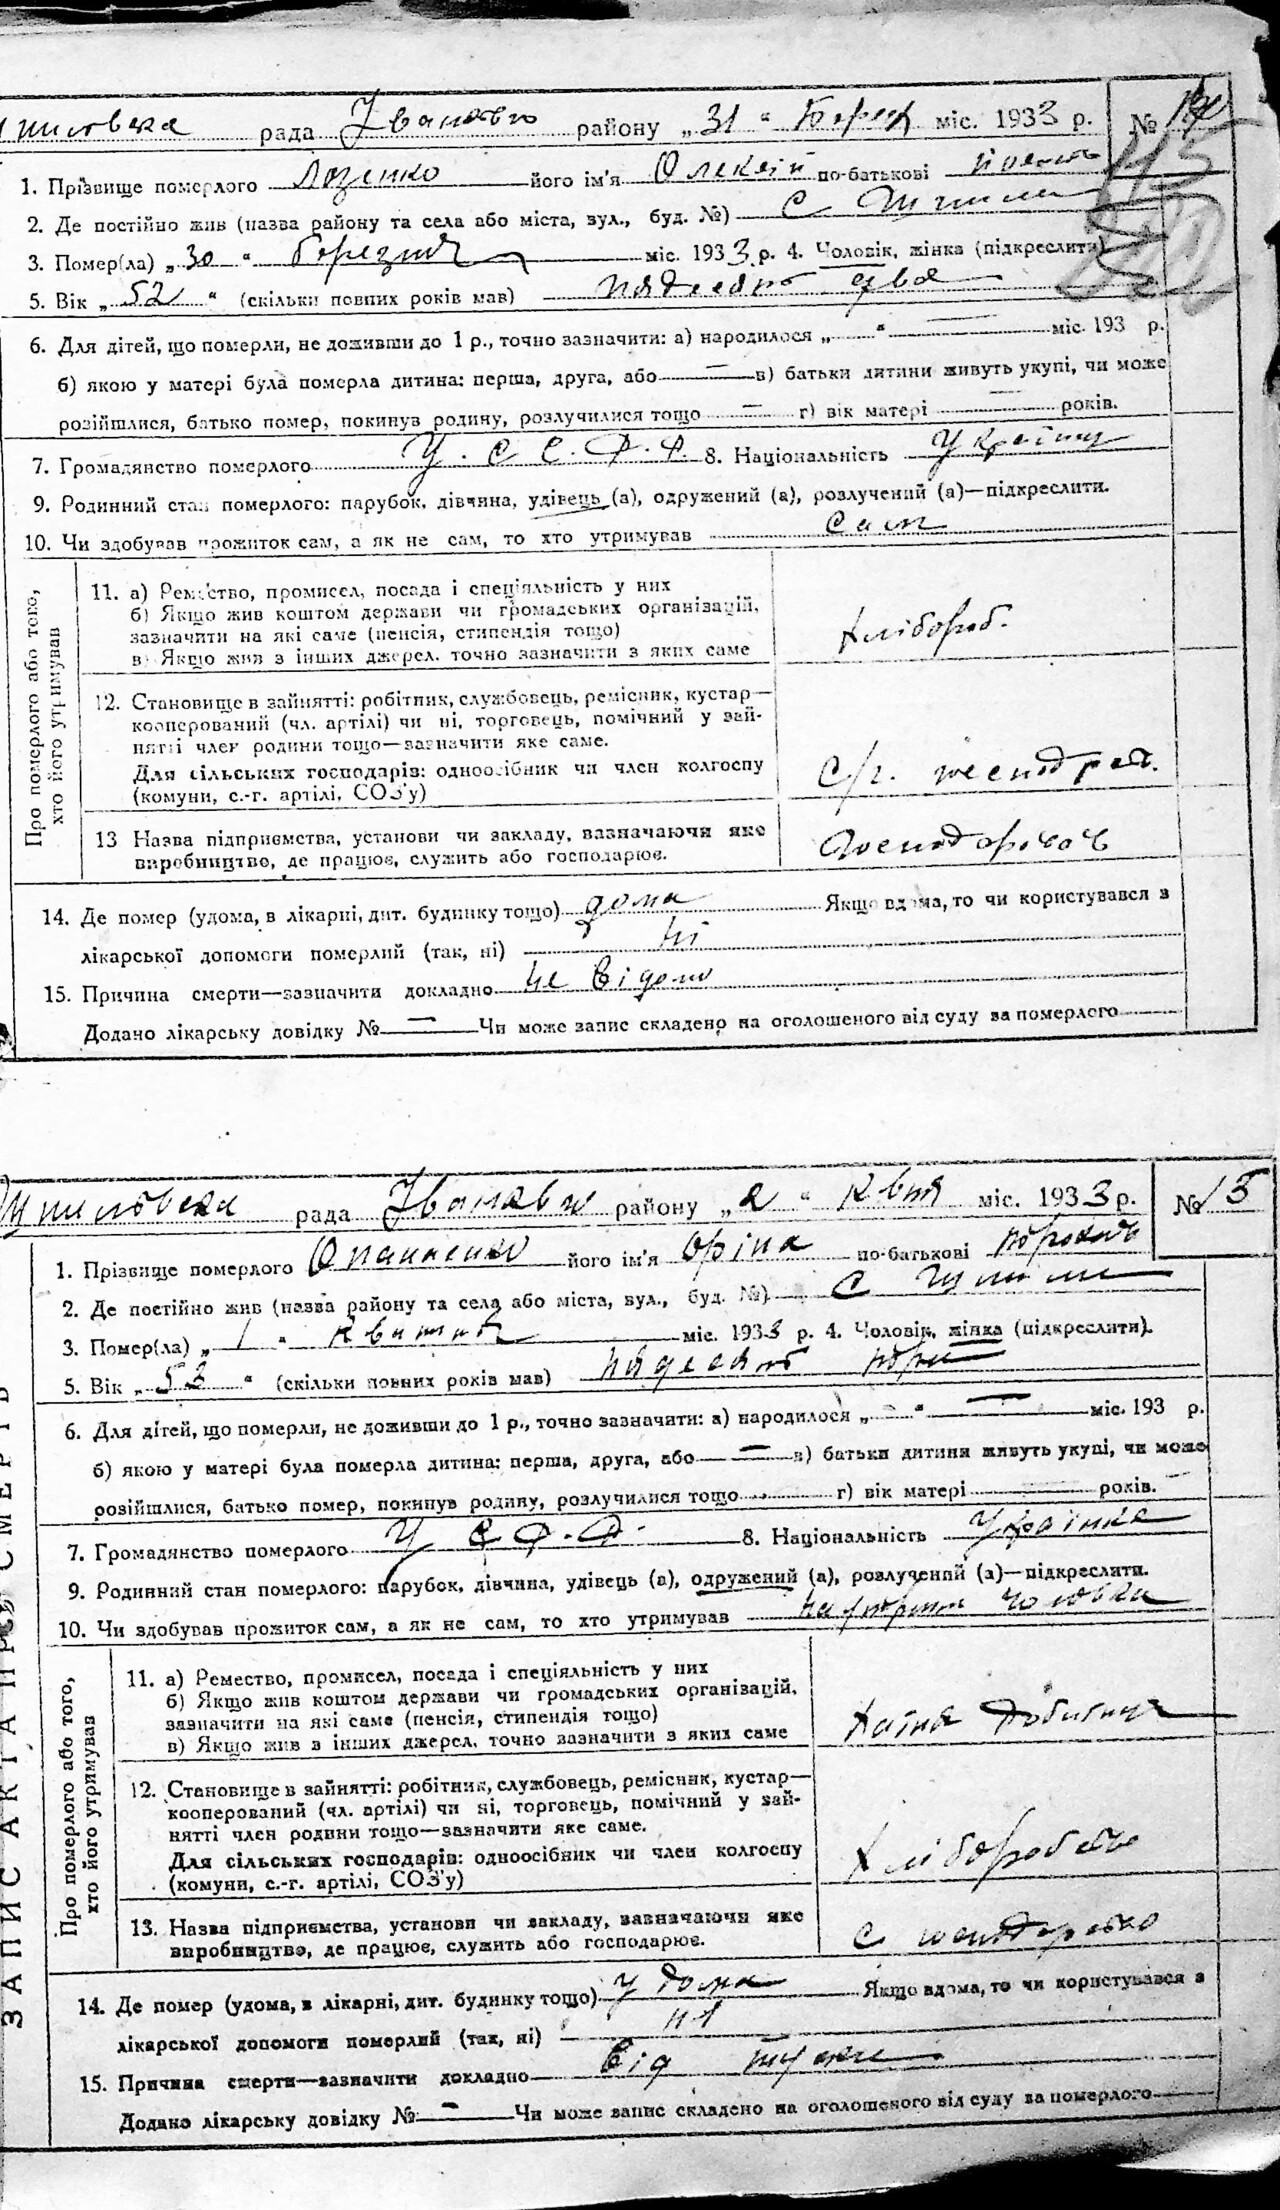 рада Іванівськ району „31“ Берез міс. 1933 р. № 14
1. Прізвище померлого Лазенко його ім'я Олексій по-батькові
2. Де постійно жив (назва району та села або міста, вул., буд. №) с
3. Помер(ла) „30“ березня міс. 1933 р. 4. Чоловік, жінка (підкреслити)
5. Вік „52“ (скільки повних років мав) пядесять два
6. Для дітей, що померли, не доживши до 1 р., точно зазначити: а) народилося „—“ — міс. 193 р.
б) якою у матері була померла дитина: перша, друга, або — в) батьки дитини живуть укупі, чи може
розійшлися, батько помер, покинув родину, розлучилися тощо — г) вік матері — років.
7. Громадянство померлого У. С С. Р. Р. 8. Національність Українц
9. Родинний стан померлого: парубок, дівчина, удівець (а), одружений (а), розлучений (а)—підкреслити.
10. Чи здобував прожиток сам, а як не сам, то хто утримував сам
Про померлого або того,
хто його утримував
11. а) Ремество, промисел, посада і спеціяльність у них
б) Якщо жив коштом держави чи громадських організацій,
зазначити на які саме (пенсія, стипендія тощо)
в) Якщо жив з інших джерел, точно зазначити з яких саме
хлібороб.
12. Становище в зайнятті: робітник, службовець, ремісник, кустар—
кооперований (чл. артілі) чи ні, торговець, помічний у зай-
нятті член родини тощо—зазначити яке саме.
Для сільських господарів: одноосібник чи член колгоспу
(комуни, с.-г. артілі, СОЗ'у)
с/г.
13 Назва підприємства, установи чи закладу, зазначаючи яке
виробництво, де працює, служить або господарює.
14. Де помер (удома, в лікарні, дит. будинку тощо) дома Якщо вдома, то чи користувався з
лікарської допомоги померлий (так, ні) ні
15. Причина смерти—зазначити докладно не відомо
Додано лікарську довідку № — Чи може запис складено на оголошеного від суду за померлого
ЗАПИС АКТА ПРО СМЕРТЬ
рада Іванівськ району „2“ квітня міс. 1933 р. № 15
1. Прізвище померлого Опанченко його ім'я Оріна по-батькові
2. Де постійно жив (назва району та села або міста, вул., буд. №) с
3. Помер(ла) „1“ квітня міс. 1933 р. 4. Чоловік, жінка (підкреслити).
5. Вік „53“ (скільки повних років мав) пядесять три
6. Для дітей, що померли, не доживши до 1 р., точно зазначити: а) народилося „—“ — міс. 193 р.
б) якою у матері була померла дитина: перша, друга, або — в) батьки дитини живуть укупі, чи може
розійшлися, батько помер, покинув родину, розлучилися тощо г) вік матері — років.
7. Громадянство померлого У С Р. Р. 8. Національність Українка
9. Родинний стан померлого: парубок, дівчина, удівець (а), одружений (а), розлучений (а)—підкреслити.
10. Чи здобував прожиток сам, а як не сам, то хто утримував чоловка
Про померлого або того,
хто його утримував
11. а) Ремество, промисел, посада і спеціяльність у них
б) Якщо жив коштом держави чи громадських організацій,
зазначити на які саме (пенсія, стипендія тощо)
в) Якщо жив з інших джерел, точно зазначити з яких саме
12. Становище в зайнятті: робітник, службовець, ремісник, кустар—
кооперований (чл. артілі) чи ні, торговець, помічний у зай-
нятті член родини тощо—зазначити яке саме.
Для сільських господарів: одноосібник чи член колгоспу
(комуни, с.-г. артілі, СОЗ'у)
13. Назва підприємства, установи чи закладу, зазначаючи яке
виробництво, де працює, служить або господарює.
14. Де помер (удома, в лікарні, дит. будинку тощо) у дома Якщо вдома, то чи користувався з
лікарської допомоги померлий (так, ні) ні
15. Причина смерти—зазначити докладно від
Додано лікарську довідку № — Чи може запис складено на оголошеного від суду за померлого